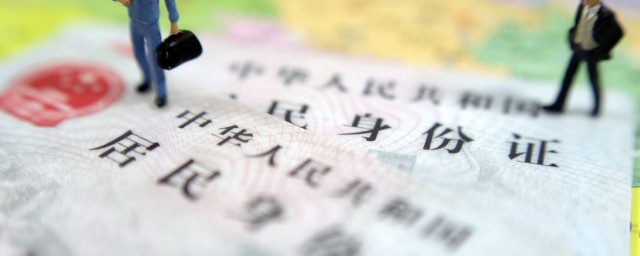 中华人民共和国
民身份证
中华人民共和国
居民身份